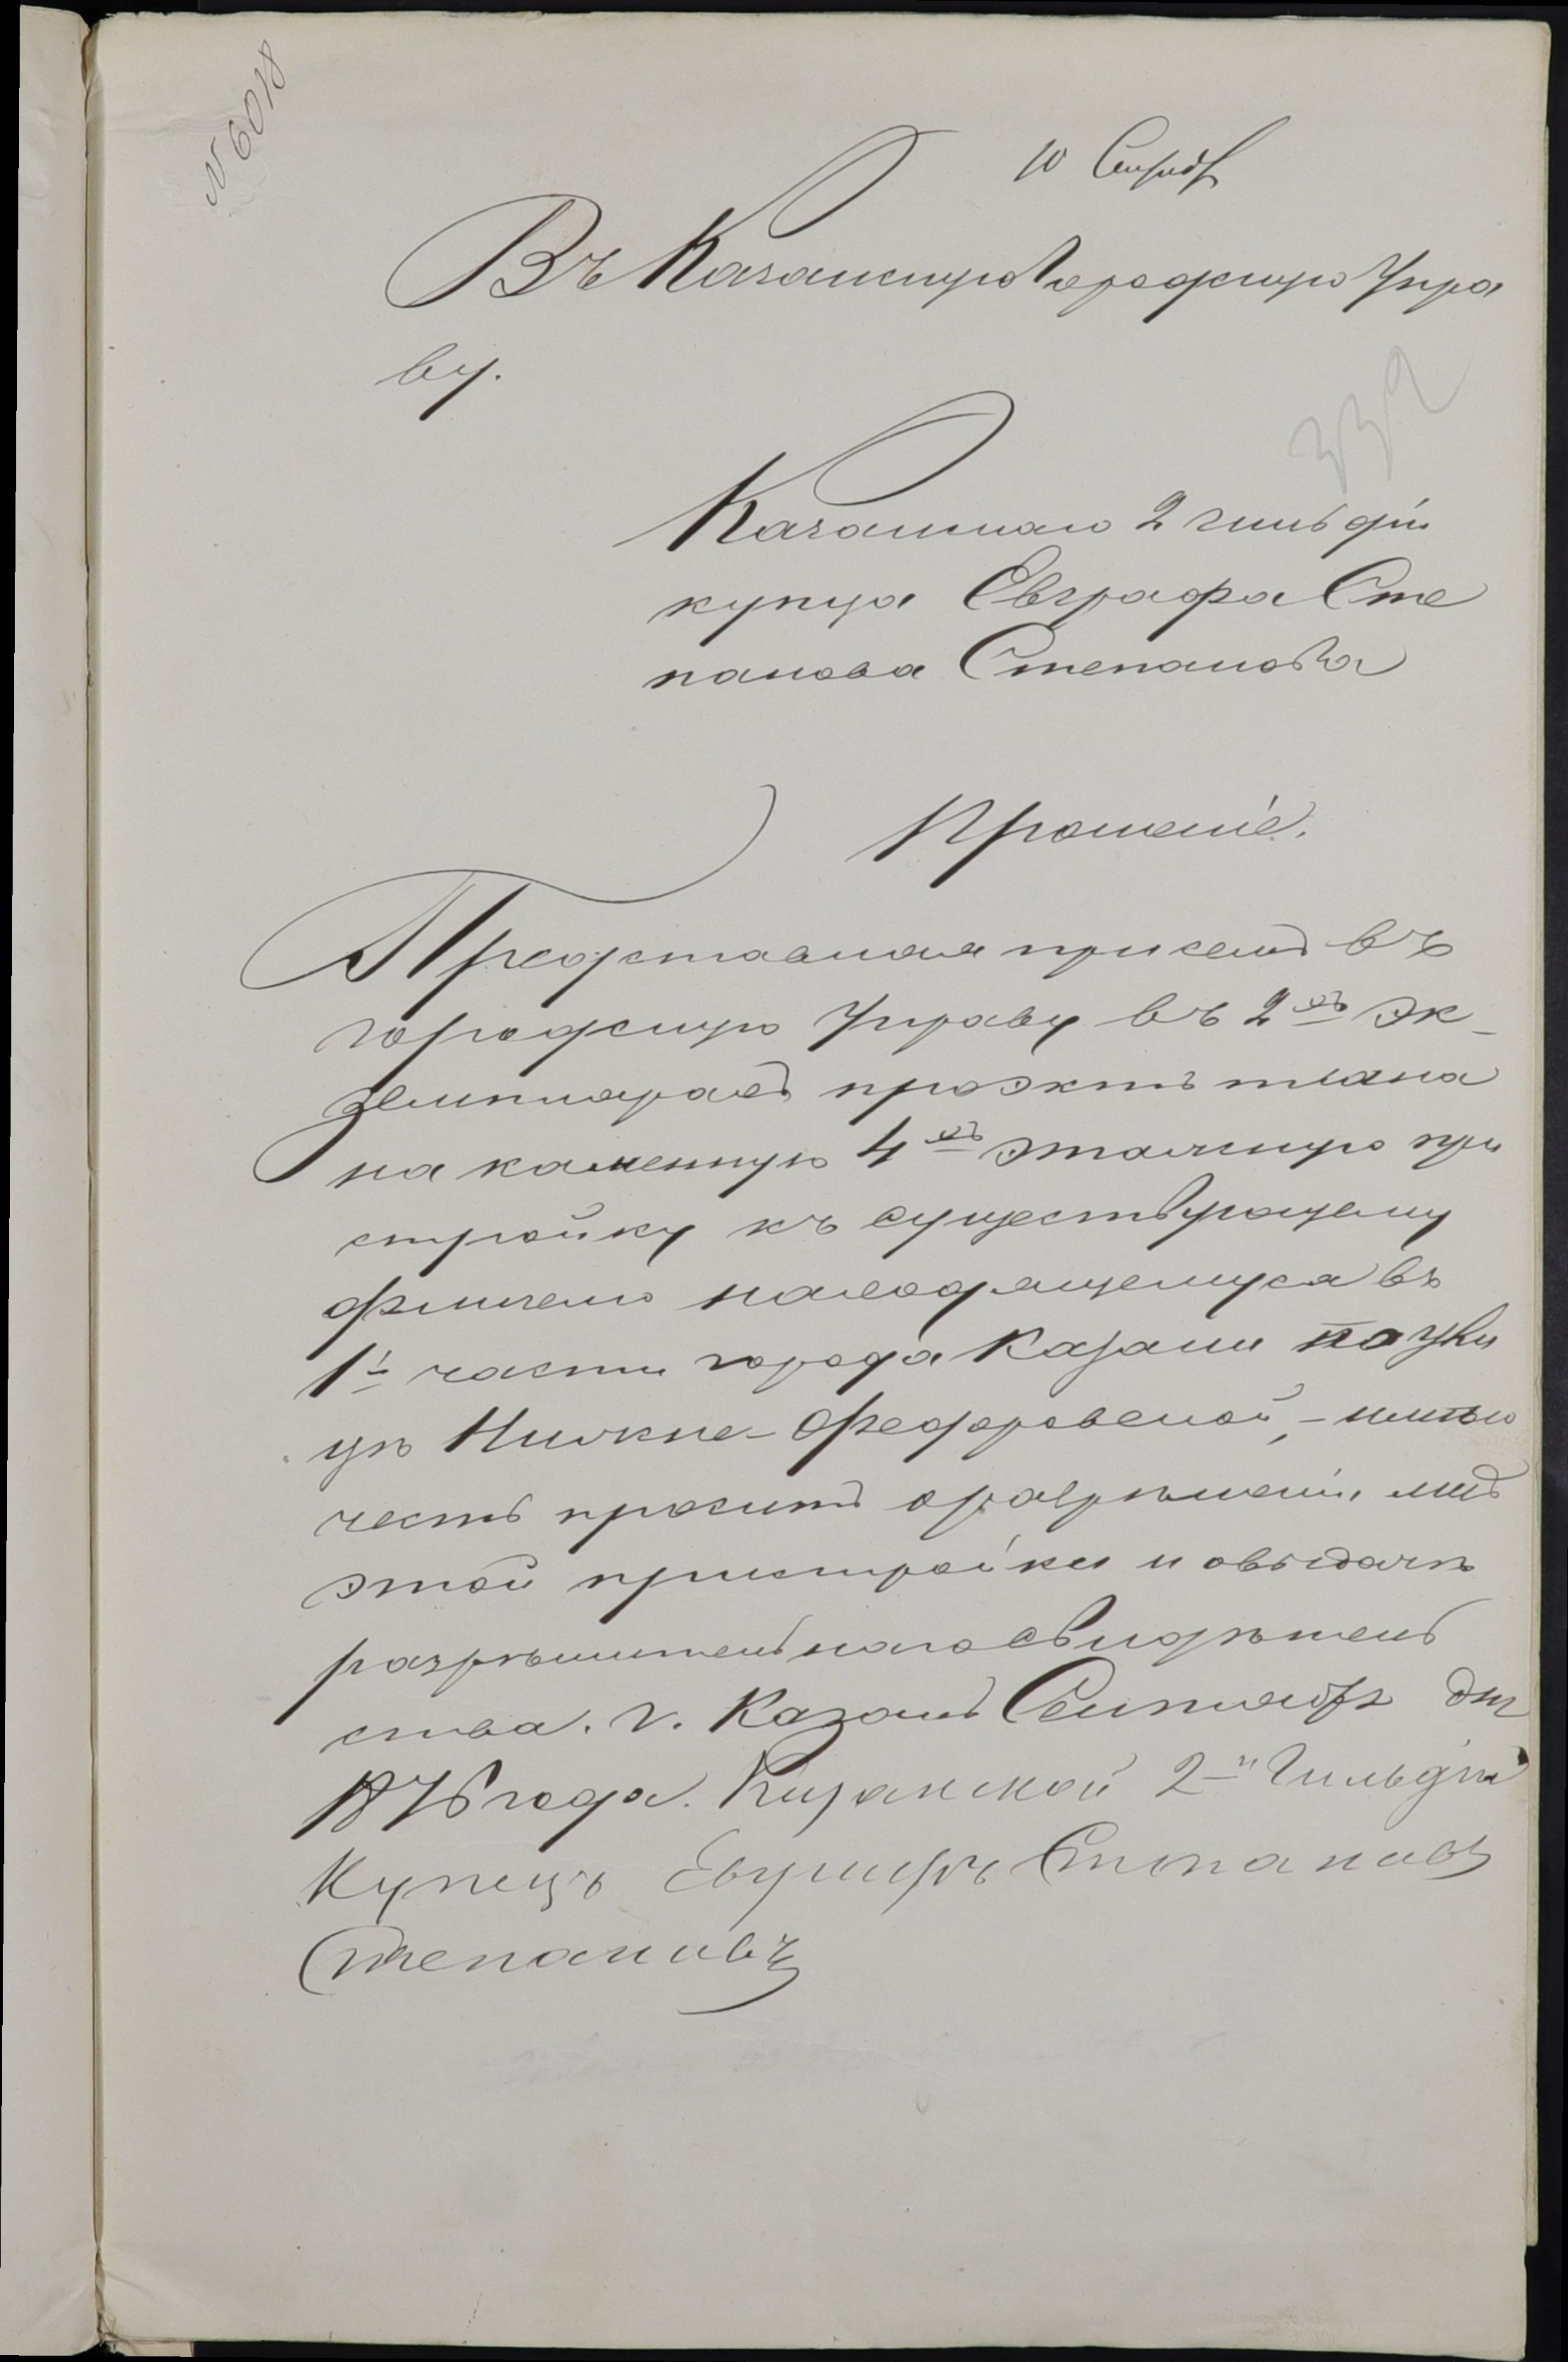 N 6018
10 Сентяб
Въ Казанскую Городскую Упра
ву.
332
Казанскаго 2 гильдіи
купца Евграфа Сте
панова Степанова
Прошеніе.
Представляя присемъ въ
городскую Управу въ 2хъ эк-
земплярахъ проэктъ плана
на каменную 4хъ этажную при
стройку къ существующему
флигелю находящемуся въ
1й части города Казани по ули
цѣ Нижне-Федоровской, - имѣю
честь просить о разрѣшеніи мнѣ
этой пристройки и о выдачѣ
разрѣшительнаго свидѣтель
ства. г. Казань Сентября дня
1876 года. Казанской 2й Гильдіи
Купецъ Евграфъ Степановъ
Степановъ